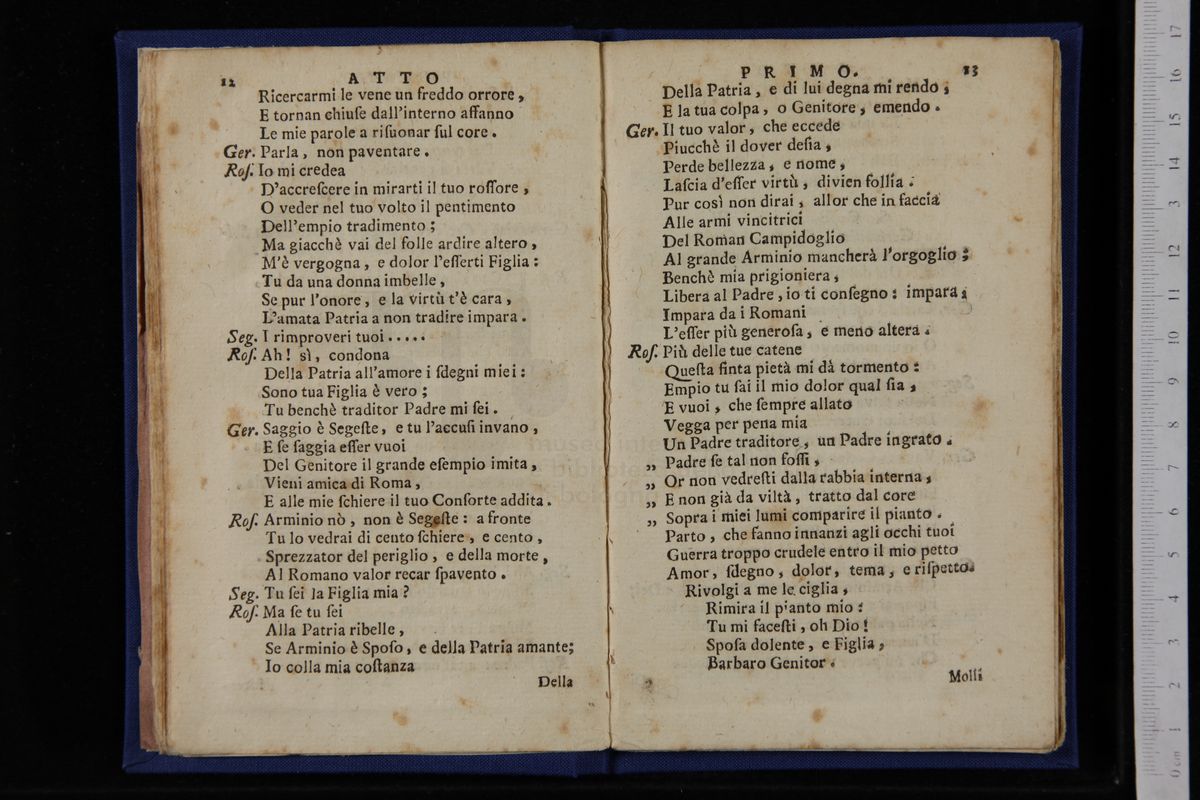 12 ATTO
Ricercarmi le vene un freddo orrore,
E tornan chiuſe dall'interno affanno
Le mie parole a riſuonar ſul core.
Ger. Parla, non paventare.
Roſ. Io mi credea
D'accreſcere in mirarti il tuo roſſore,
O veder nel tuo volto il pentimento
Dell'empio tradimento;
Ma giacchè vai del folle ardire altero,
M'è vergogna, e dolor l'eſſerti Figlia:
Tu da una donna imbelle,
Se pur l'onore, e la virtù t'è cara,
L'amata Patria a non tradire impara.
Seg. I rimproveri tuoi.....
Roſ. Ah! sì, condona
Della Patria all'amore i ſdegni miei:
Sono tua Figlia è vero;
Tu benchè traditor Padre mi ſei.
Ger. Saggio è Segeſte, e tu l'accuſi invano,
E ſe ſaggia eſſer vuoi
Del Genitore il grande eſempio imita,
Vieni amica di Roma,
E alle mie ſchiere il tuo Conſorte addita.
Roſ. Arminio nò, non è Segeſte: a fronte
Tu lo vedrai di cento ſchiere, e cento,
Sprezzator del periglio, e della morte,
Al Romano valor recar ſpavento.
Seg. Tu ſei la Figlia mia?
Roſ. Ma ſe tu ſei
Alla Patria ribelle,
Se Arminio è Spoſo, e della Patria amante;
Io colla mia coſtanza
Della
PRIMO. 13
Della Patria, e di lui degna mi rendo,
E la tua colpa, o Genitore, emendo.
Ger. Il tuo valor, che eccede
Piucchè il dover deſia,
Perde bellezza, e nome,
Laſcia d'eſſer virtù, divien follia.
Pur così non dirai, allor che in faccia
Alle armi vincitrici
Del Roman Campidoglio
Al grande Arminio mancherà l'orgoglio;
Benchè mia prigioniera,
Libera al Padre, io ti conſegno: impara,
Impara da i Romani
L'eſſer più generoſa, e meno altera.
Roſ. Più delle tue catene
Queſta finta pietà mi dà tormento:
Empio tu ſai il mio dolor qual ſia,
E vuoi, che ſempre allato
Vegga per pena mia
Un Padre traditore, un Padre ingrato.
„ Padre ſe tal non foſſi,
„ Or non vedreſti dalla rabbia interna,
„ E non già da viltà, tratto dal core
„ Sopra i miei lumi comparire il pianto.
Parto, che fanno innanzi agli occhi tuoi
Guerra troppo crudele entro il mio petto
Amor, ſdegno, dolor, tema, e riſpetto.
Rivolgi a me le ciglia,
Rimira il pianto mio:
Tu mi faceſti, oh Dio!
Spoſa dolente, e Figlia,
Barbaro Genitor.
Molli